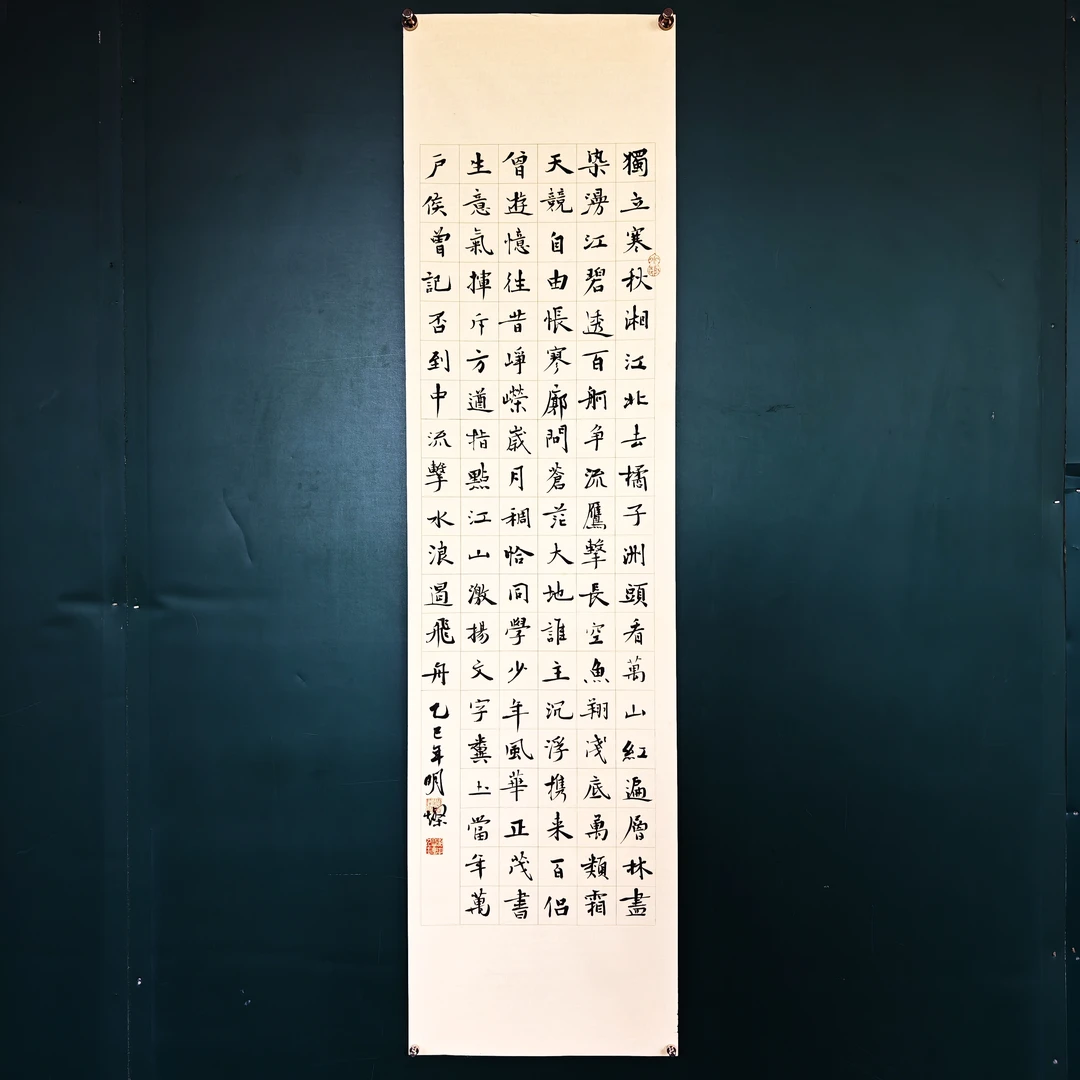 獨立寒秋湘江北去橘子洲頭看萬山紅遍層林盡
染漫江碧透百舸争流鷹擊長空魚翔淺底萬類霜
天競自由悵寥廓問蒼茫大地誰主沉浮携来百侣
曾遊憶往昔崢嶸歲月稠恰同學少年風華正茂書
生意氣揮斥方遒指點江山激揚文字糞土當年萬
户侯曾記否到中流擊水浪遏飛舟乙巳年明燦